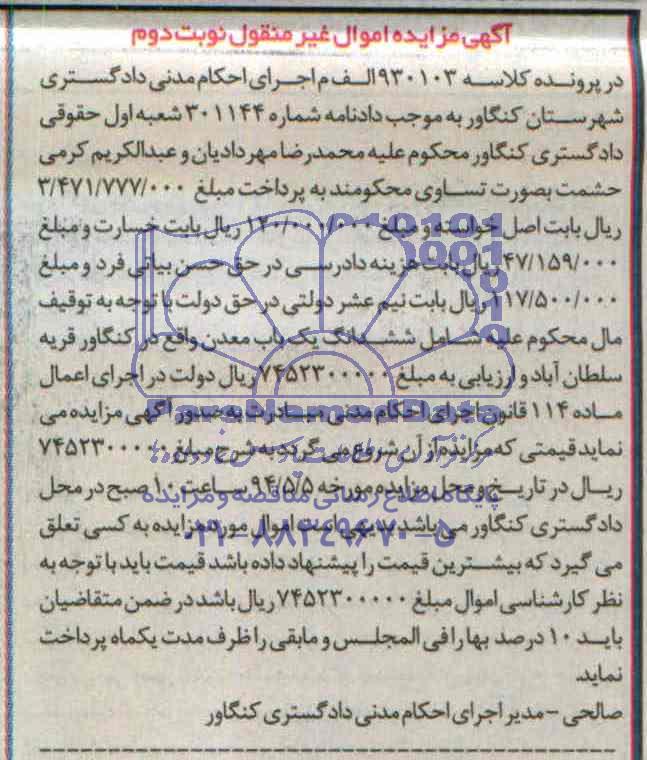 آگهی مزایده اموال غیر منقول نوبت دوم
در پرونده کلاسه ۹۳۰۱۰۳ الف م اجرای احکام مدنی دادگستری
شهرستان کنگاور به موجب دادنامه شماره ۳۰۱۱۴۴ شعبه اول حقوقی
دادگستری کنگاور محکوم علیه محمدرضا مهردادیان و عبدالکریم کرمی
حشمت بصورت تساوی محکومند به پرداخت مبلغ ۳/۴۷۱/۷۷۷/۰۰۰
ریال بابت اصل خواسته و مبلغ ۱۲۰/۰۰۰/۰۰۰ ریال بابت خسارت و مبلغ
۴۷/۱۵۹/۰۰۰ ریال بابت هزینه دادرسی در حق حسن بیاتی فرد و مبلغ
۱۱۷/۵۰۰/۰۰۰ ریال بابت نیم عشر دولتی در حق دولت با توجه به توقیف
مال محکوم علیه شامل ششدانگ یک باب معدن واقع در کنگاور قریه
سلطان آباد و ارزیابی به مبلغ ۷۴۵۲۳۰۰۰۰۰ ریال دولت در اجرای اعمال
ماده ۱۱۴ قانون اجرای احکام مدنی مبادرت به صدور آگهی مزایده می
نماید قیمتی که مزایده از آن شروع می گردد به شرح مبلغ ۷۴۵۲۳۰۰۰۰۰
ریال در تاریخ و محل مزایده مورخه ۹۴/۵/۵ ساعت ۱۰ صبح در محل
دادگستری کنگاور می باشد بدیهی است اموال مورد مزایده به کسی تعلق
می گیرد که بیشترین قیمت را پیشنهاد داده باشد قیمت باید با توجه به
نظر کارشناسی اموال مبلغ ۷۴۵۲۳۰۰۰۰۰ ریال باشد در ضمن متقاضیان
باید ۱۰ درصد بها را فی المجلس و مابقی را ظرف مدت یکماه پرداخت
نماید.
صالحی - مدیر اجرای احکام مدنی دادگستری کنگاور
ParsNamadData
پایگاه اطلاع رسانی مناقصه و مزایده
۰۲۱-۸۸۳۴۹۶۷۰-۵